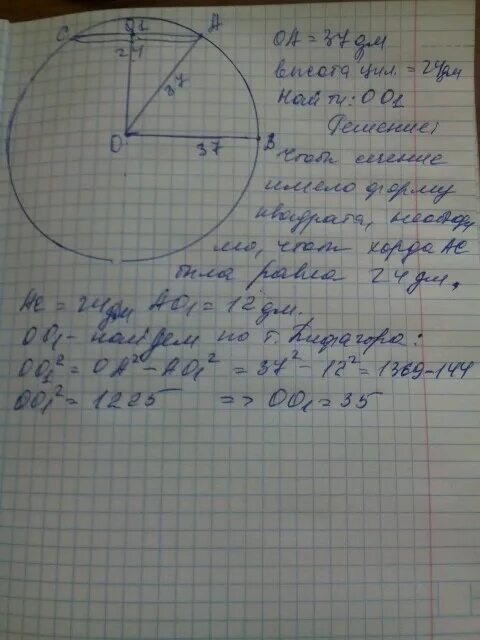 C O1 A
24
37
O 37 B
OA = 37 дм
высота цил. = 24 дм
Найти: OO1
Решение:
Чтобы сечение
имело форму
квадрата, необходи
мо, чтобы хорда AC
была равна 24 дм.
AC = 24 дм AO1 = 12 дм.
OO1 - найдем по т. Пифагора:
OO1² = OA² - AO1² = 37² - 12² = 1369 - 144
OO1² = 1225 => OO1 = 35